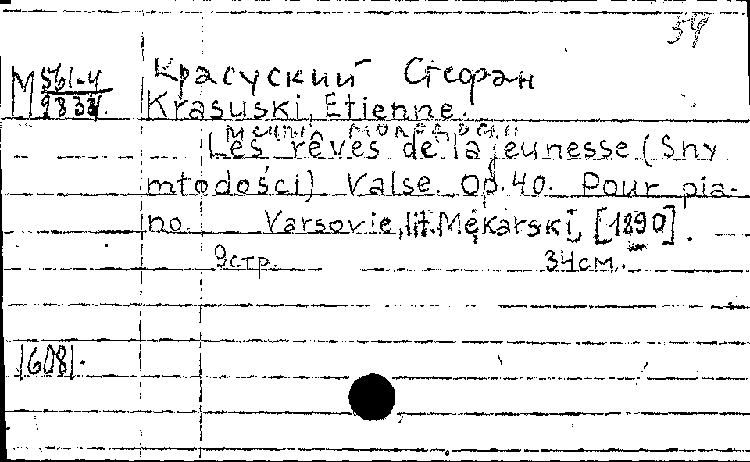 39
М 561-4
Красуский Стефан
983
Krasuski, Etienne.
Мечты молодости
Les rêves de la jeunesse (Sny
młodości). Valse. Op. 40. Pour pia-
no. Varsovie, lit. Mękarski, [1890].
9стр. 34см.
16081.